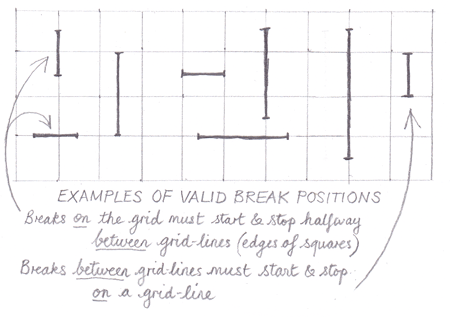 EXAMPLES OF VALID BREAK POSITIONS
Breaks on the grid must start & stop halfway
between grid-lines (edges of squares)
Breaks between grid-lines must start & stop
on a grid-line